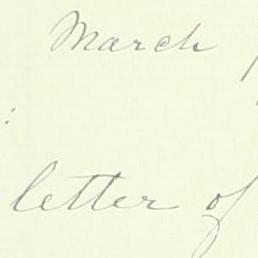 March
:
letter of